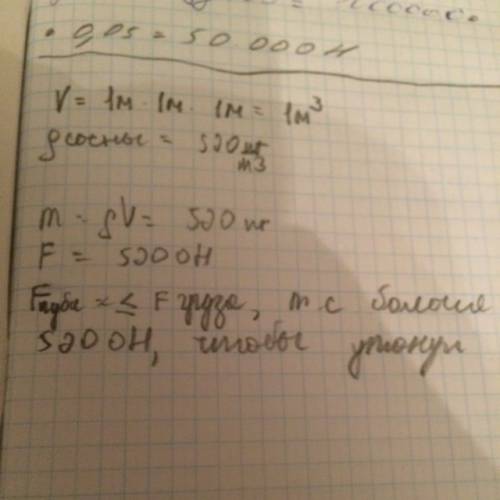 • 0,05 = 50 000Н
V = 1м · 1м · 1м = 1м³
ρ сосны = 520 кг/м3
m = ρV = 520 кг
F = 5200Н
F куба ≤ F груза, т.е больше
5200Н, чтобы утонул